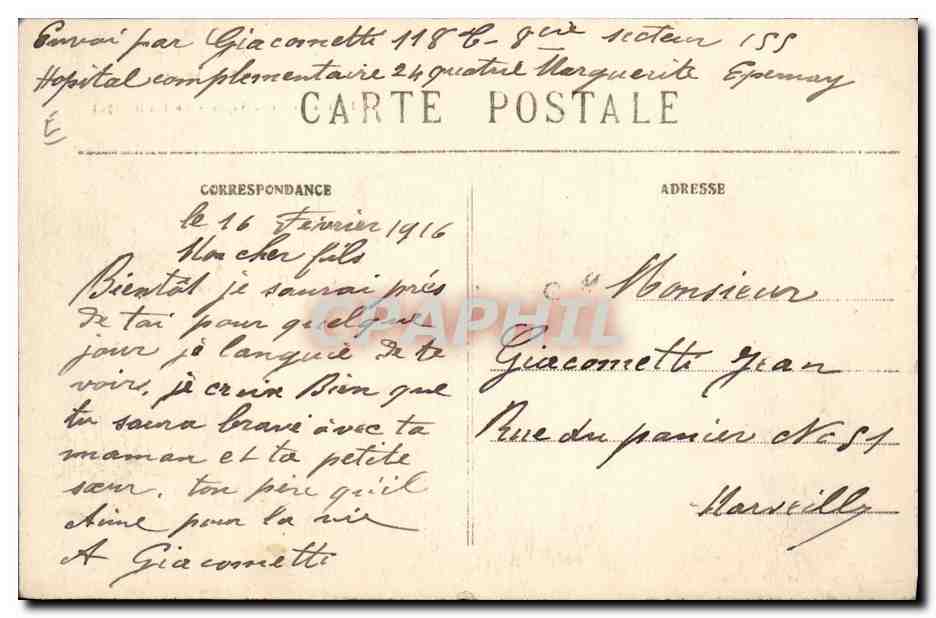 Envoi par Giacometti 118 t- 8 ᵉᵐᵉ secteur 155
Hopital complementaire 24 quatre Marguerite Epernay
CARTE POSTALE
CORRESPONDANCE
le 16 Février 1916
Mon cher fils
Bientôt je saurai prés
de tai pour quelque
jour je languie de te
voir, je croix Bien que
tu saura brave avec ta
maman et ta petite
sœur. ton père qu'il
Aime pour la vie
A Giacometti
ADRESSE
Monsieur
Giacometti Jean
Rue du panier No 51
Marseille
CPAPHIL